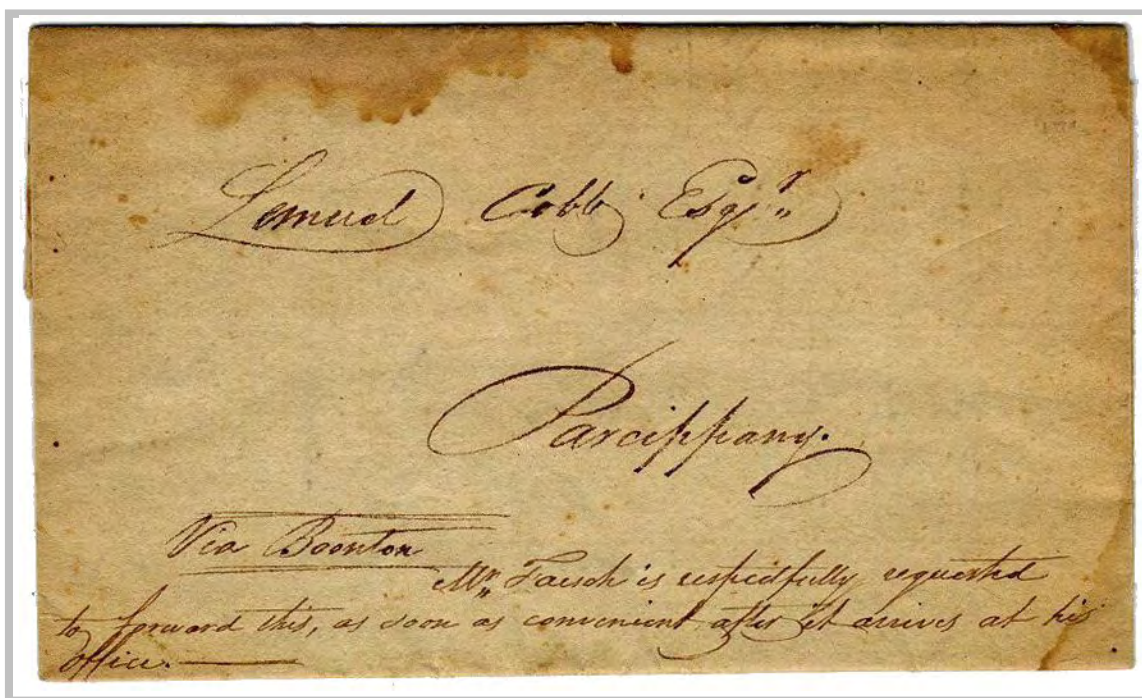 Lemuel Cobb Esqr
Parcippany.
Via Boonton
Mr Faesch is respectfully requested
to forward this, as soon as convenient after it arrives at his
office. —